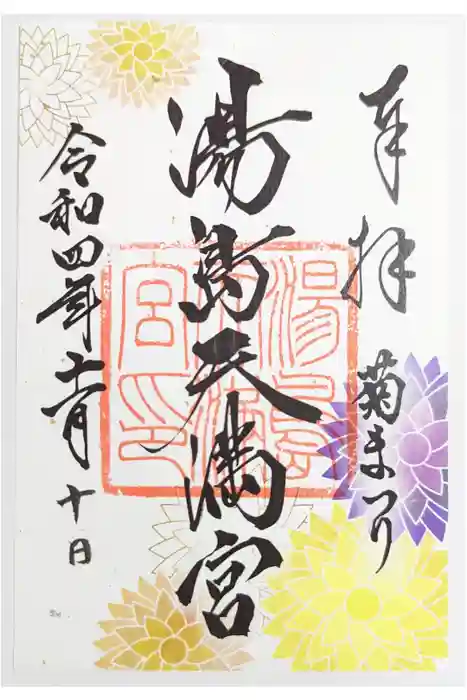 奉拝
菊まつり
湯島天満宮
令和四年十一月十日